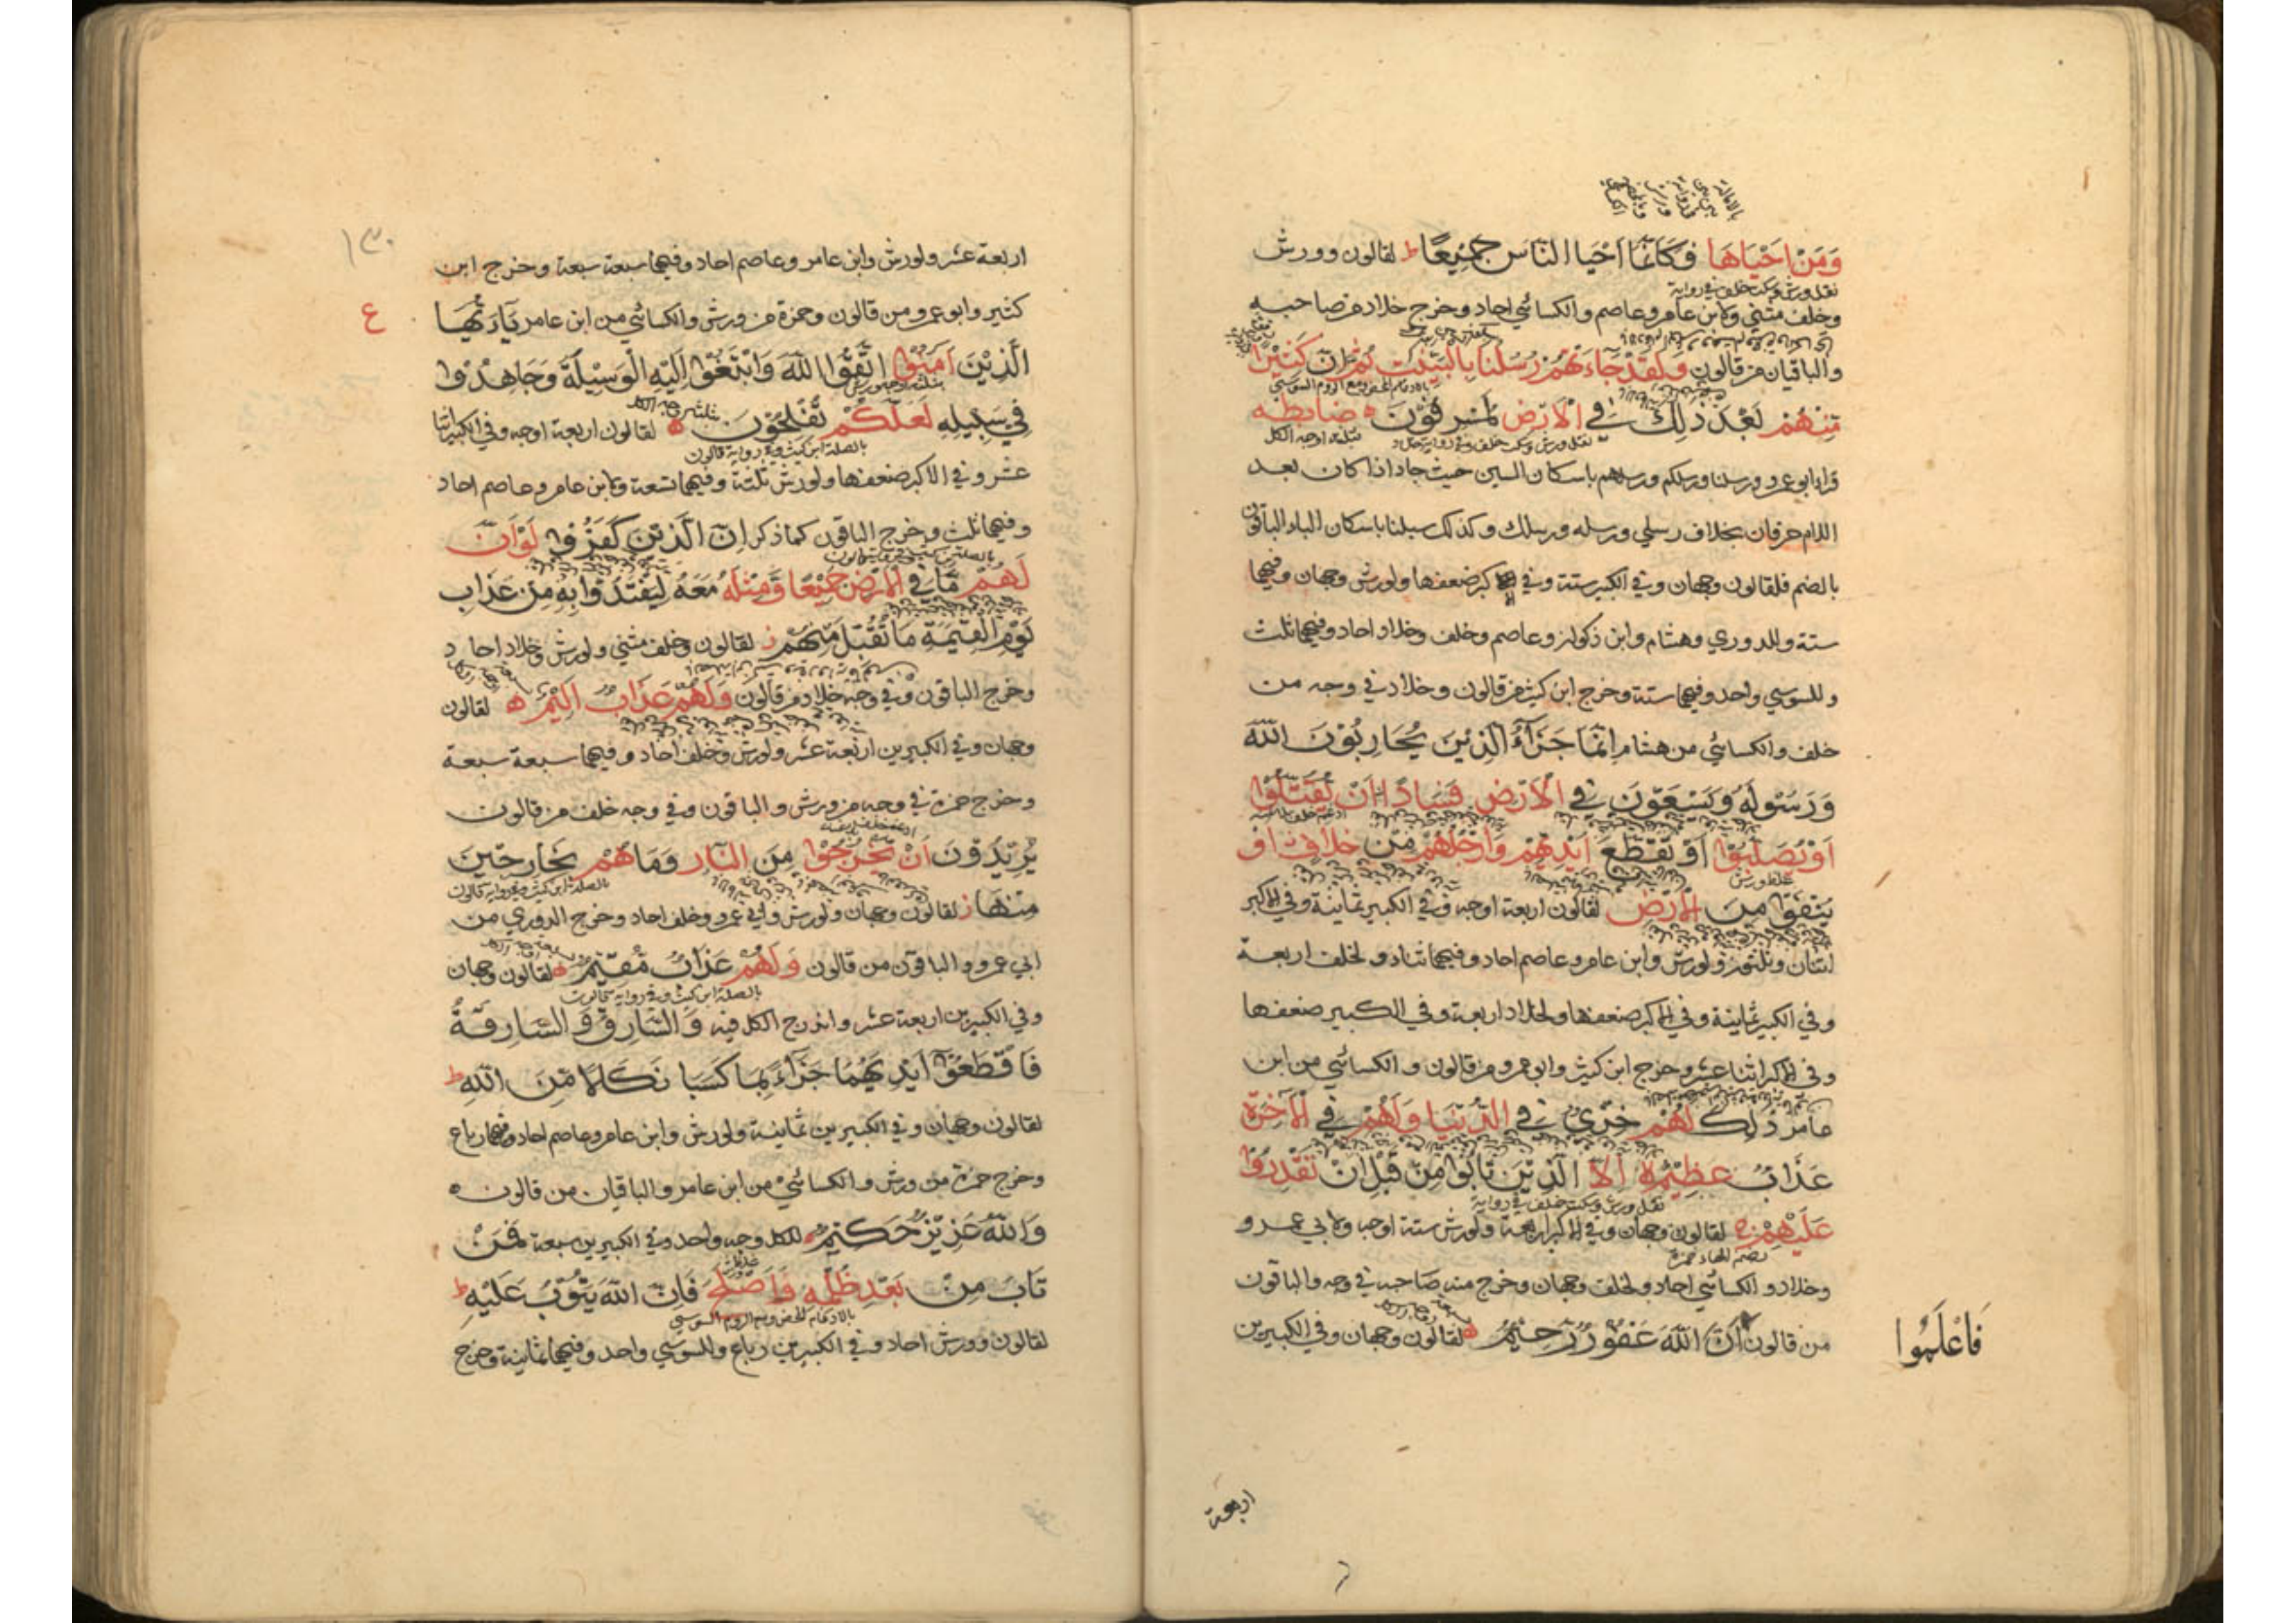 وَمَنْ اَحْيَاهَا فَكَاَنَّمَا اَحْيَا النَّاسَ جَمِيْعًا ط لقالون وورش
نقل ورش وسكت خلف في رواية
وخلف مثنى ولابن عامر وعاصم والكسائي احاد وخرج خلاد من صاحبه
والباقيان من قالون وَلَقَدْ جَاءَتْهُمْ رُسُلُنَا بِالْبَيِّنٰتِ ثُمَّ اِنَّ كَثِيْرًا
مِنْهُمْ بَعْدَ ذٰلِكَ فِي الْاَرْضِ لَمُسْرِفُوْنَ ضابطه
قرا ابو عمرو رسلنا ورسلكم ورسلهم باسكان السين حيث جاء اذا كان بعد
اللام حرفان بخلاف رسلي ورسله ورسلك وكذلك سبلنا باسكان الباء الباقون
بالضم فلقالون وجهان وفي الكبير ستة وفي الاكبر ضعفها ولورش وجهان وفيهما
ستة وللدوري وهشام وابن ذكوان وعاصم وخلف وخلاد احاد وفيهما ثلث
وللسوسي واحد وفيهما ستة وخرج ابن كثير من قالون وخلاد في وجه من
خلف والكسائي من هشام اِنَّمَا جَزَآءُ الَّذِيْنَ يُحَارِبُوْنَ اللّٰهَ
وَرَسُوْلَهٗ وَيَسْعَوْنَ فِي الْاَرْضِ فَسَادًا اَنْ يُقَتَّلُوْا
اَوْ يُصَلَّبُوْا اَوْ تُقَطَّعَ اَيْدِيْهِمْ وَاَرْجُلُهُمْ مِنْ خِلَافٍ اَوْ
يُنْفَوْا مِنَ الْاَرْضِ لقالون اربعة اوجه وفي الكبير ثمانية وفي الاكبر
اثنان وثلثون ولورش وابن عامر وعاصم احاد وفيهما ثناء ولخلف اربعة
وفي الكبير ثمانية وفي الاكبر ضعفها ولخلاد اربعة وفي الكبير ضعفها
وفي الاكبر اثنا عشر وخرج ابن كثير وابو عمرو من قالون والكسائي من ابن
عامر ذٰلِكَ لَهُمْ خِزْيٌ فِي الدُّنْيَا وَلَهُمْ فِي الْاٰخِرَةِ
عَذَابٌ عَظِيْمٌ اِلَّا الَّذِيْنَ تَابُوْا مِنْ قَبْلِ اَنْ تَقْدِرُوْا
نقل ورش وسكت خلف في رواية
عَلَيْهِمْ لقالون وجهان وفي الاكبر اربعة ولورش ستة اوجه ولابي عمرو
بضم الهاء حمزة
وخلاد والكسائي احاد ولخلف وجهان وخرج منه صاحبه في وجه والباقون
من قالون اَنَّ اللّٰهَ غَفُوْرٌ رَحِيْمٌ لقالون وجهان وفي الكبيرين
فَاعْلَمُوْا
اربعة
١٣٠
اربعة عشر ولورش وابن عامر وعاصم احاد وفيهما سبعة سبعة وخرج ابن
ع
كثير وابو عمرو من قالون وحمزة من ورش والكسائي من ابن عامر يٰٓاَيُّهَا
الَّذِيْنَ اٰمَنُوْا اتَّقُوا اللّٰهَ وَابْتَغُوْٓا اِلَيْهِ الْوَسِيْلَةَ وَجَاهِدُوْا
فِيْ سَبِيْلِهٖ لَعَلَّكُمْ تُفْلِحُوْنَ لقالون اربعة اوجه وفي الكبير اثنا
بالصلة ابن كثير وفي رواية قالون
عشر وفي الاكبر ضعفها ولورش ثلثة وفيهما تسعة ولابن عامر وعاصم احاد
وفيهما ثلث وخرج الباقون كما ذكر اِنَّ الَّذِيْنَ كَفَرُوْا لَوْ اَنَّ
لَهُمْ مَا فِي الْاَرْضِ جَمِيْعًا وَمِثْلَهٗ مَعَهٗ لِيَفْتَدُوْا بِهٖ مِنْ عَذَابِ
يَوْمِ الْقِيٰمَةِ مَا تُقُبِّلَ مِنْهُمْ لقالون وخلف مثنى ولورش وخلاد احاد
وخرج الباقون وفي وجه خلاد من قالون وَلَهُمْ عَذَابٌ اَلِيْمٌ لقالون
وجهان وفي الكبيرين اربعة عشر ولورش وخلف احاد وفيهما سبعة سبعة
وخرج حمزة في وجه من ورش والباقون وفي وجه خلف من قالون
يُرِيْدُوْنَ اَنْ يَخْرُجُوْا مِنَ النَّارِ وَمَا هُمْ بِخَارِجِيْنَ
بالصلة ابن كثير وفي رواية قالون
مِنْهَا لقالون وجهان ولورش وابي عمرو وخلف احاد وخرج الدوري من
ابي عمرو والباقون من قالون وَلَهُمْ عَذَابٌ مُقِيْمٌ لقالون وجهان
بالصلة ابن كثير وفي رواية قالون
وفي الكبيرين اربعة عشر واندرج الكل فيه وَالسَّارِقُ وَالسَّارِقَةُ
فَاقْطَعُوْٓا اَيْدِيَهُمَا جَزَآءً بِمَا كَسَبَا نَكَالًا مِنَ اللّٰهِ ط
لقالون وجهان وفي الكبيرين ثمانية ولورش وابن عامر وعاصم احاد وفيهما رباع
وخرج حمزة من ورش والكسائي من ابن عامر والباقيان من قالون
وَاللّٰهُ عَزِيْزٌ حَكِيْمٌ للكل وجه واحد وفي الكبيرين سبعة فَمَنْ
تَابَ مِنْ بَعْدِ ظُلْمِهٖ وَاَصْلَحَ فَاِنَّ اللّٰهَ يَتُوْبُ عَلَيْهِ ط
بالادغام المحض ومع الروم السوسي
لقالون وورش احاد وفي الكبيرين رباع وللسوسي واحد وفيهما ثمانية وخرج